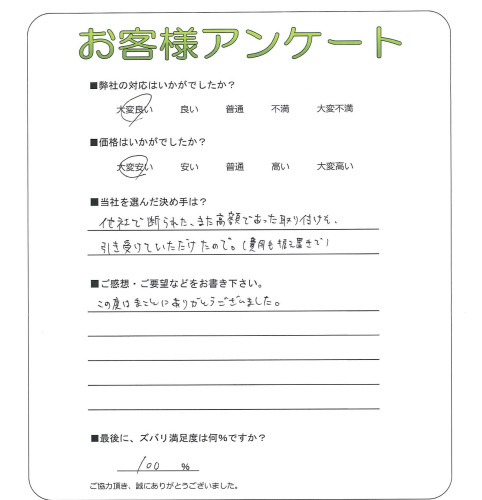 お客様アンケート
■弊社の対応はいかがでしたか？
大変良い 良い 普通 不満 大変不満
■価格はいかがでしたか？
大変安い 安い 普通 高い 大変高い
■当社を選んだ決め手は？
他社で断られた、また高額であった取り付けを、
引き受けていただけたので。(費用も据え置きで)
■ご感想・ご要望などをお書き下さい。
この度はまことにありがとうございました。
■最後に、ズバリ満足度は何%ですか？
100 %
ご協力頂き、誠にありがとうございました。